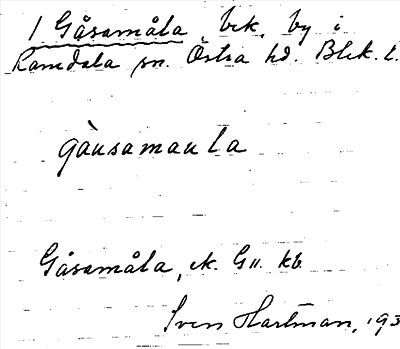 1 Gåsamåla, bek. by i
Ramdala sn. Östra hd. Blek. l.
gàusamaula
Gåsamåla, ek. G11. kb
Sven Hartman, 193